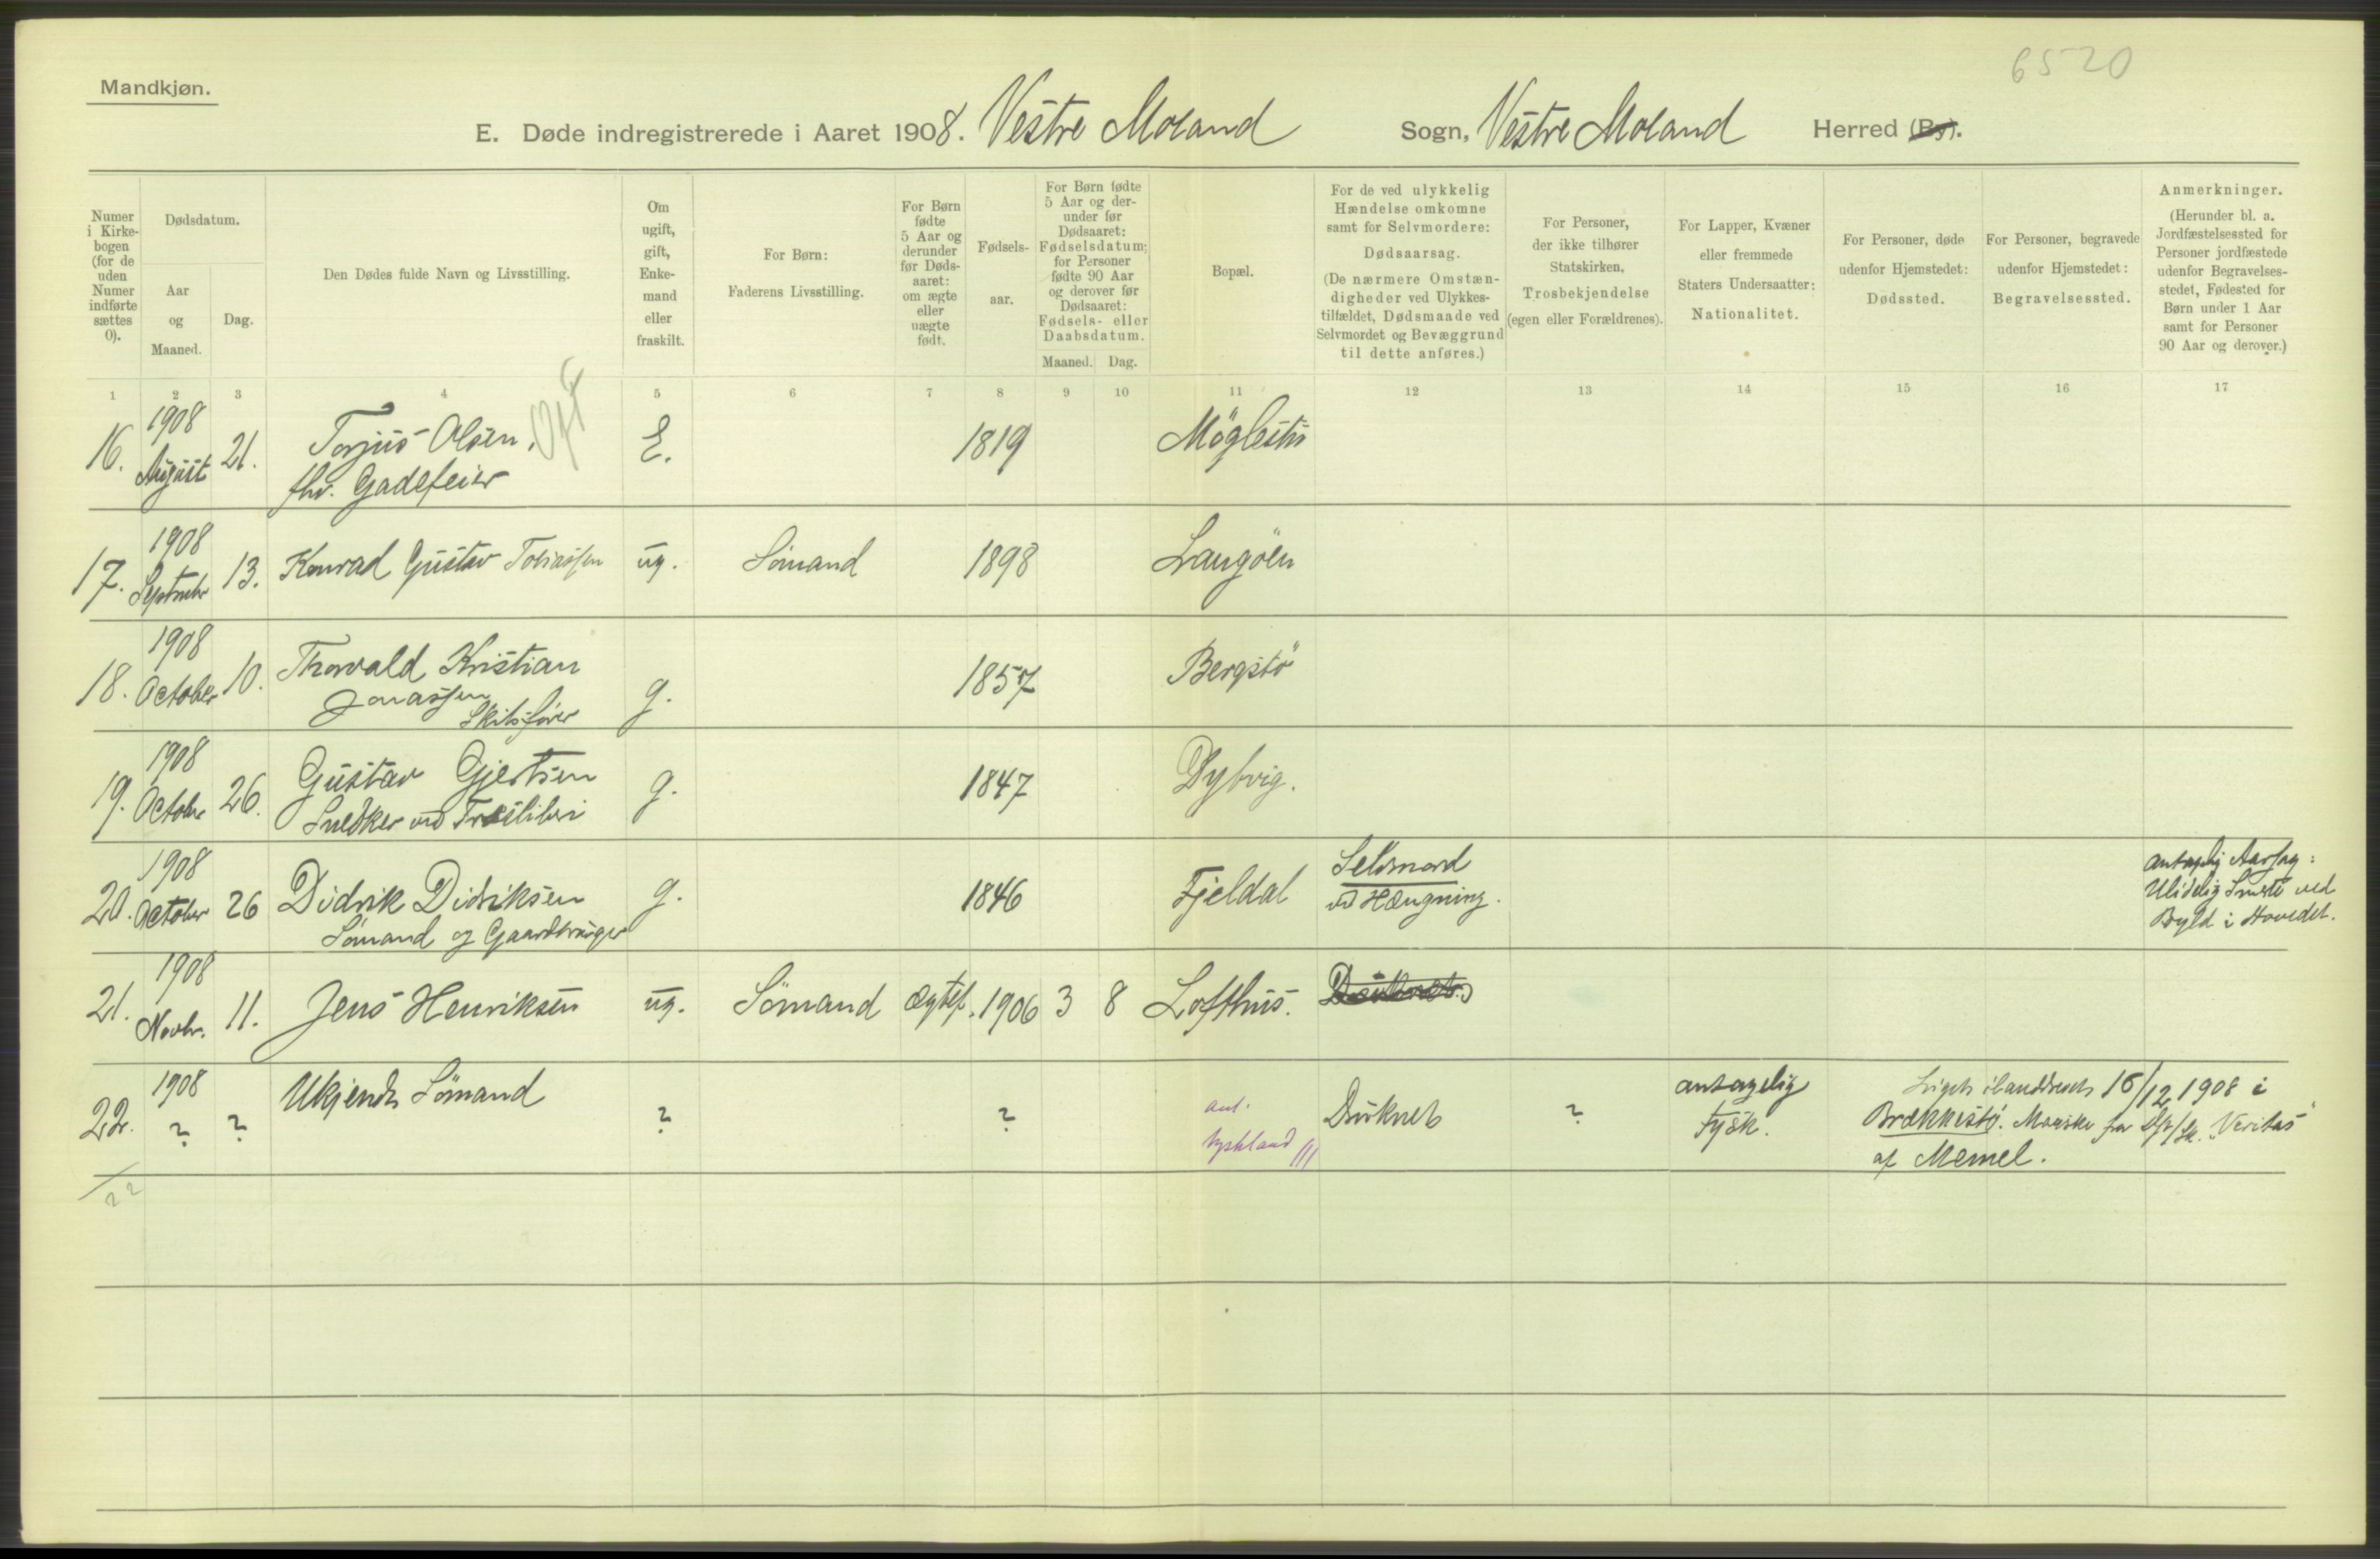 6520
Mandkjøn.
E. Døde indregistrerede i Aaret 1908. Vestre Moland Sogn, Vestre Moland Herred (By).
Numer i Kirke-bogen (for de uden Numer indførte sættes 0).
Dødsdatum.
Aar og Maaned.
Dag.
Den Dødes fulde Navn og Livsstilling.
Om ugift, gift, Enke-mand eller fraskilt.
For Børn:
Faderens Livsstilling.
For Børn fødte 5 Aar og derunder før Døds-aaret: om ægte eller uægte født.
Fødsels-aar.
For Børn fødte 5 Aar og der-under før Dødsaaret: Fødselsdatum; for Personer fødte 90 Aar og derover før Dødsaaret: Fødsels- eller Daabsdatum.
Maaned. Dag.
Bopæl.
For de ved ulykkelig Hændelse omkomne samt for Selvmordere:
Dødsaarsag.
(De nærmere Omstæn-digheder ved Ulykkes-tilfældet, Dødsmaade ved Selvmordet og Bevæggrund til dette anføres.)
For Personer, der ikke tilhører Statskirken, Trosbekjendelse (egen eller Forældrenes).
For Lapper, Kvæner eller fremmede Staters Undersaatter:
Nationalitet.
For Personer, døde udenfor Hjemstedet:
Dødssted.
For Personer, begravede udenfor Hjemstedet:
Begravelsessted.
Anmerkninger.
(Herunder bl. a. Jordfæstelsessted for Personer jordfæstede udenfor Begravelses-stedet, Fødested for Børn under 1 Aar samt for Personer 90 Aar og derover.)
1 2 3 4 5 6 7 8 9 10 11 12 13 14 15 16 17
16. 1908 August 21. Torjus Olsen, E. 1819 Möglestu
fhv. Gadefeier
17. 1908 Septembr 13. Konrad Gustav Tobiassen ug. Sömand 1898 Langöen
18. 1908 October 10. Thorvald Kristian g. 1857 Bergstö
Jonassen
Skibsfører
19. 1908 Octobr 26. Gustav Gjertsen g. 1847 Dybvig.
Snedker ved Træsliberi
20. 1908 October 26 Didrik Didriksen g. 1846 Fjeldal Selvmord
ved Hængning.
Sömand og Gaardbruger
antagelig Aarsag:
Ulidelig Smerte ved
Byld i Hovedet.
21. 1908 Novbr. 11. Jens Henriksen ug. Sömand Ægtef. 1906 3 8 Lofthus. Druknet
22. 1908 ? ? Ukjendt Sömand ? ? ant. Tyskland Druknet ? antagelig Tysk.
Liget ilanddrevet 16/12 1908 i
Brækkestö. Manske fra "Veritas"
af Memel.
22